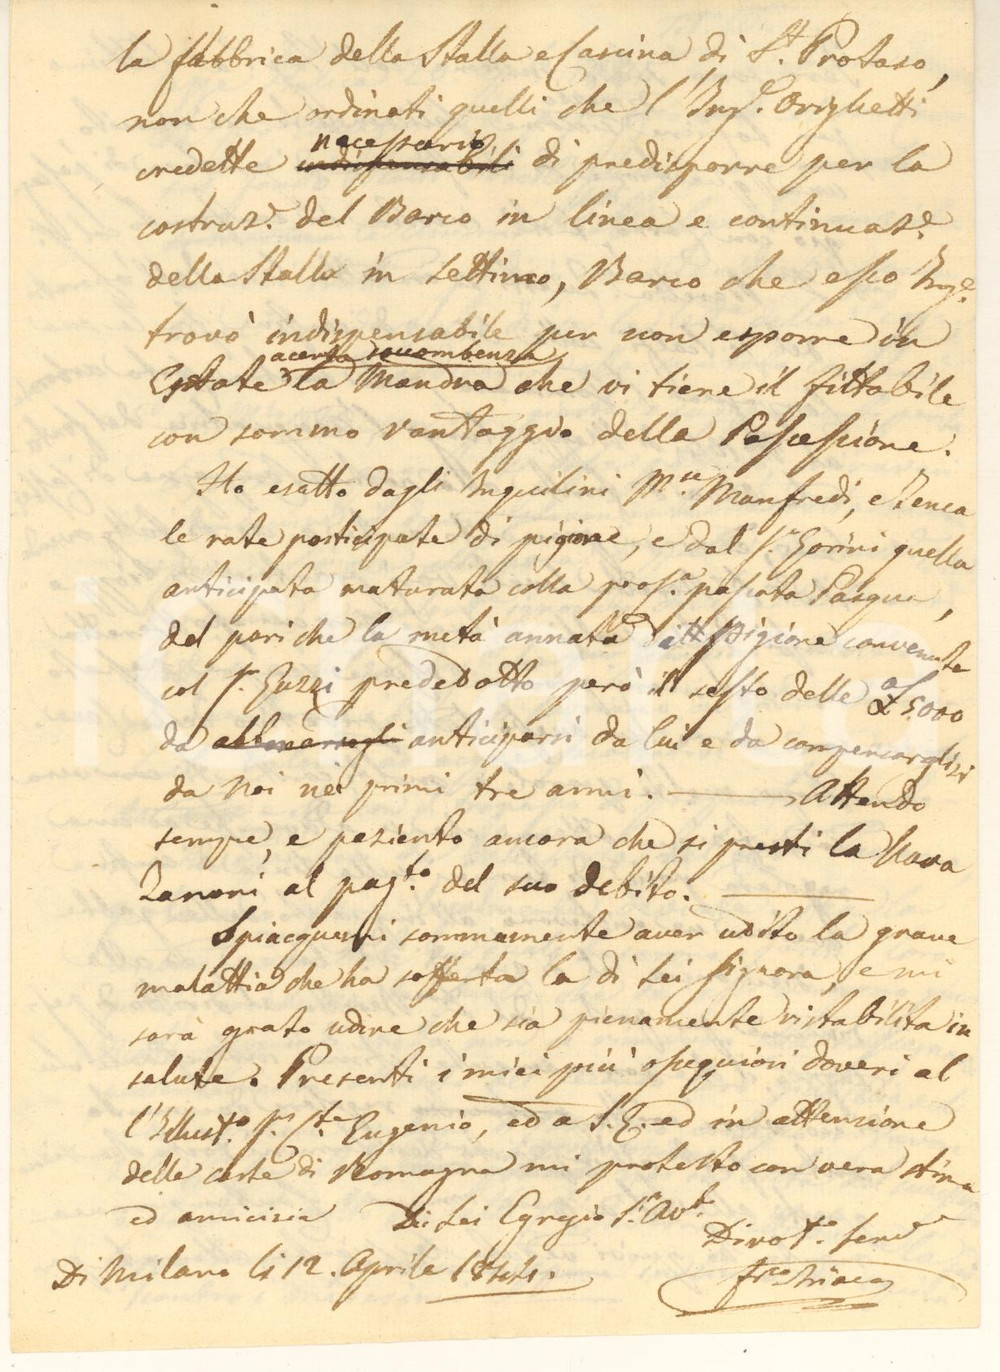 la fabbrica della Stalla e Cascina di S.t Protaso,
non che ordinati quelli che l'Ing.e Orighetti
credette necessario indispensabili di predisporre per la
costruz.e del Barco in linea e continuaz.e
della Stalla in Settimo, Barco che esso Ing.e
trovò indispensabile per non esporre in
Estate a certa soccombenza la Mandra che vi tiene il fittabile
con sommo vantaggio della Possessione.
Ho esatto dagli Inquilini Manfredi, e Zenca
le rate posticipate di pigione, e dal S.r Gorini quella
anticipata maturata colla pros.a passata Pasqua,
del pari che la metà annata di Pigione convenuta
col S.r Guzzi predebotto però il sesto delle £ 5000
da abbonarsegli anticiparsi da lui e da compensarglisi
da Noi nei primi tre anni. Attendo
sempre, e paziento ancora che si presti la Nava
Zanoni al pag.to del suo debito.
Spiacquemi sommamente aver udito la grave
malattia che ha sofferta la di Lei Signora, e mi
sarà grato udire che sia pienamente ristabilita in
salute. Presenti i miei più ossequiosi doveri al
l'Illust.o S.r C.te Eugenio, ed a S.E. ed in attenzione
delle carte di Romagna mi protesto con vera stima
ed amicizia Di Lei Egregio S.r Av.t
Divot.o Serv.e
Di Milano li 12. Aprile 1844.